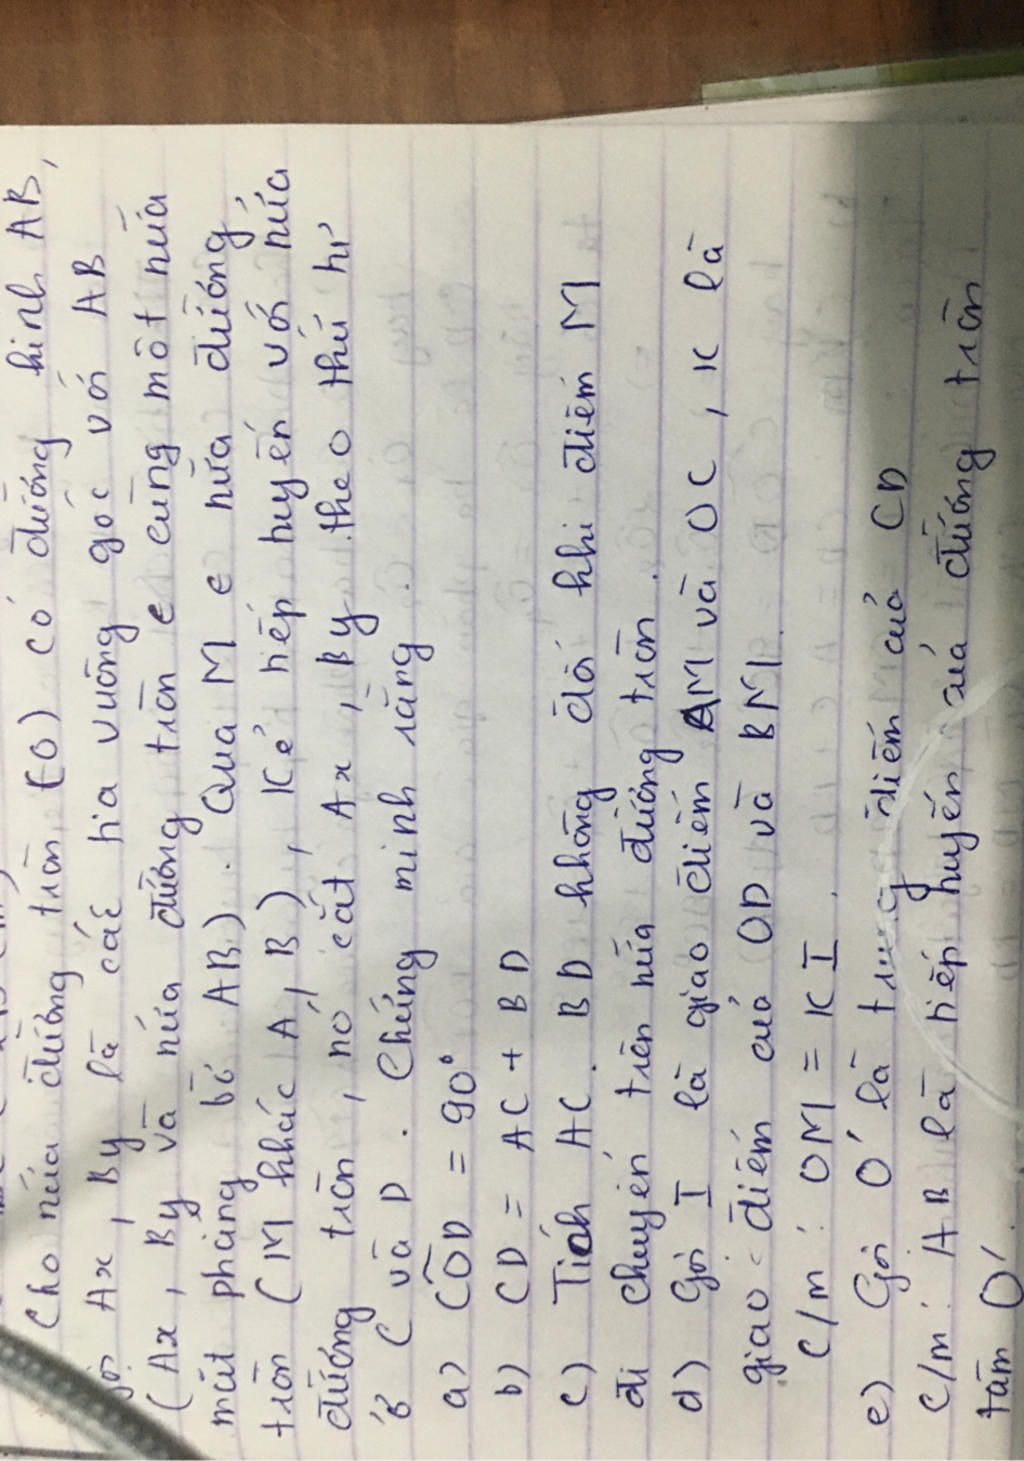 Cho nửa đường tròn (O) có đường kính AB,
gọi Ax, By là các tia vuông góc với AB
(Ax, By và nửa đường tròn ∈ cùng một nửa
mặt phẳng bờ AB). Qua M ∈ nửa đường
tròn (M khác A, B), kẻ tiếp tuyến với nửa
đường tròn, nó cắt Ax, By theo thứ tự
ở C và D. Chứng minh rằng.
a) CÔD = 90°
b) CD = AC + BD
c) Tích AC. BD không đổi khi điểm M
di chuyển trên nửa đường tròn.
d) Gọi I là giao điểm AM và OC, K là
giao điểm của OD và BM.
C/m: OM = KI.
e) Gọi O' là trung điểm của CD
C/m: AB là tiếp tuyến của đường tròn
tâm O'